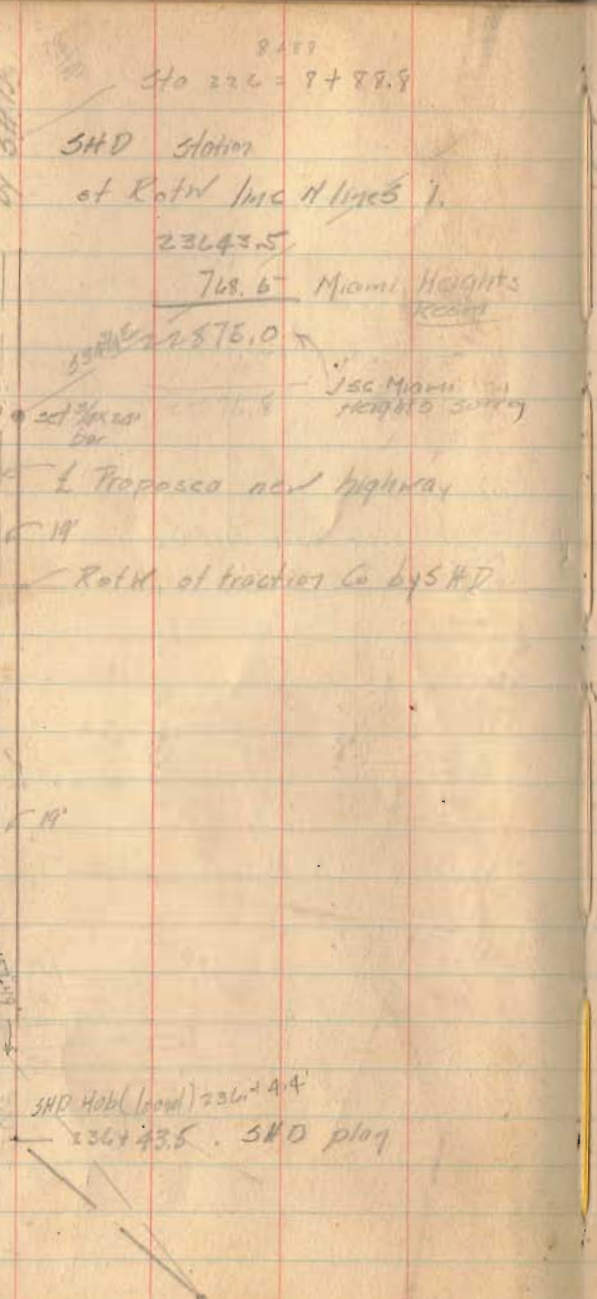 8+88
Sta 226 = 8+88.8
SHD Station
at RofW line N line S
23643.5
768.5 Miami Heights
Record
22875.0
Use Miami
Heights Survey
set
bar
Proposed new highway
19'
RofW. of traction Co by SHD
19'
SHD Hub (found) 236+44.4'
236+43.5 . SHD plan